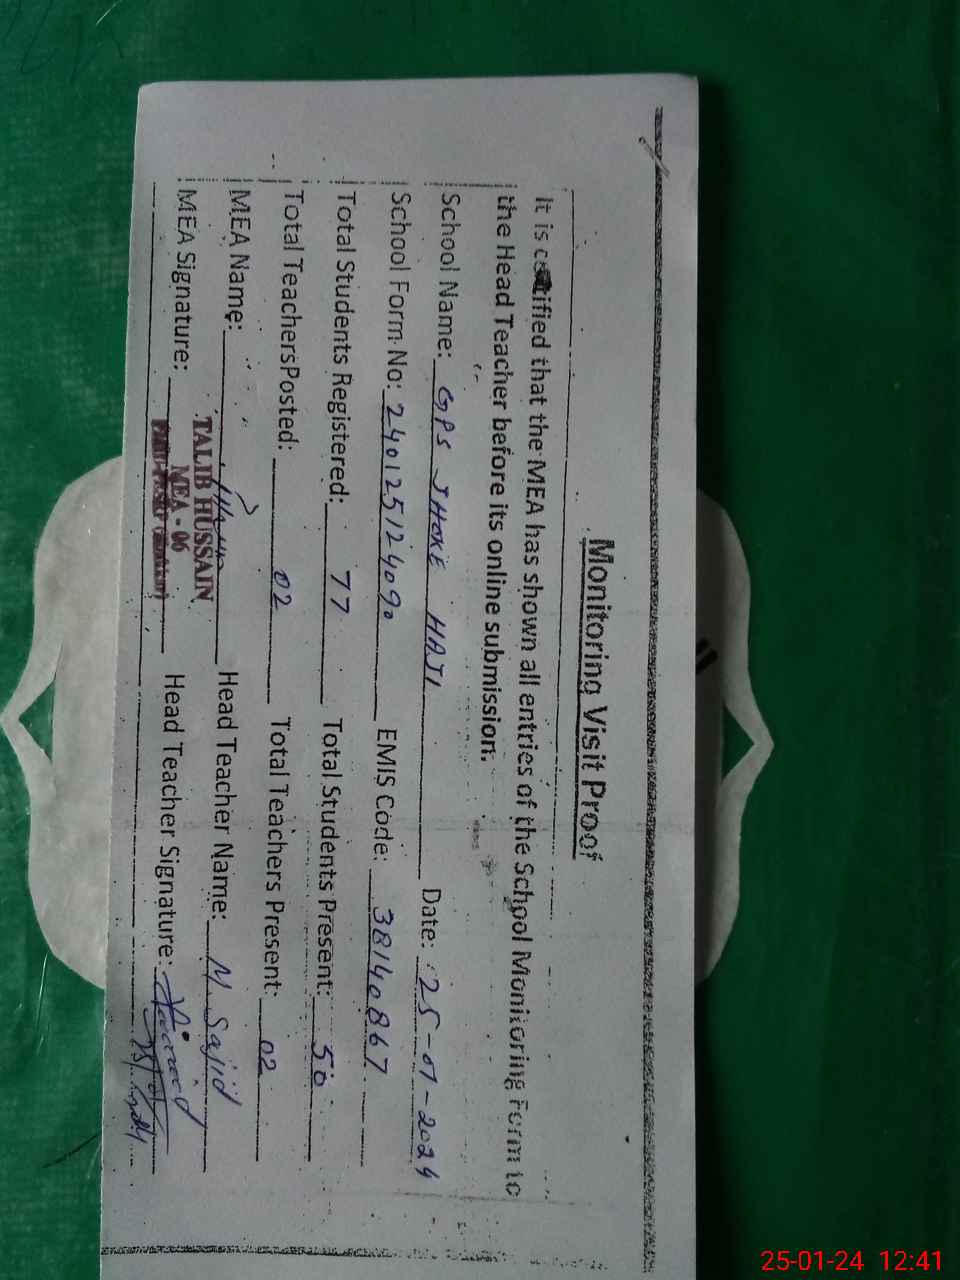 Monitoring Visit Proof
It is certified that the MEA has shown all entries of the School Monitoring Form to
the Head Teacher before its online submission.
School Name: GPS JHOKE HAJI Date: 25-01-2024
School Form No: 240125124090 EMIS Code: 38140867
Total Students Registered: 77 Total Students Present: 50
Total TeachersPosted: 02 Total Teachers Present: 02
MEA Name: Head Teacher Name: M. Sajid
TALIB HUSSAIN
MEA - 06
MEA Signature: Head Teacher Signature:
25-01-24 12:41